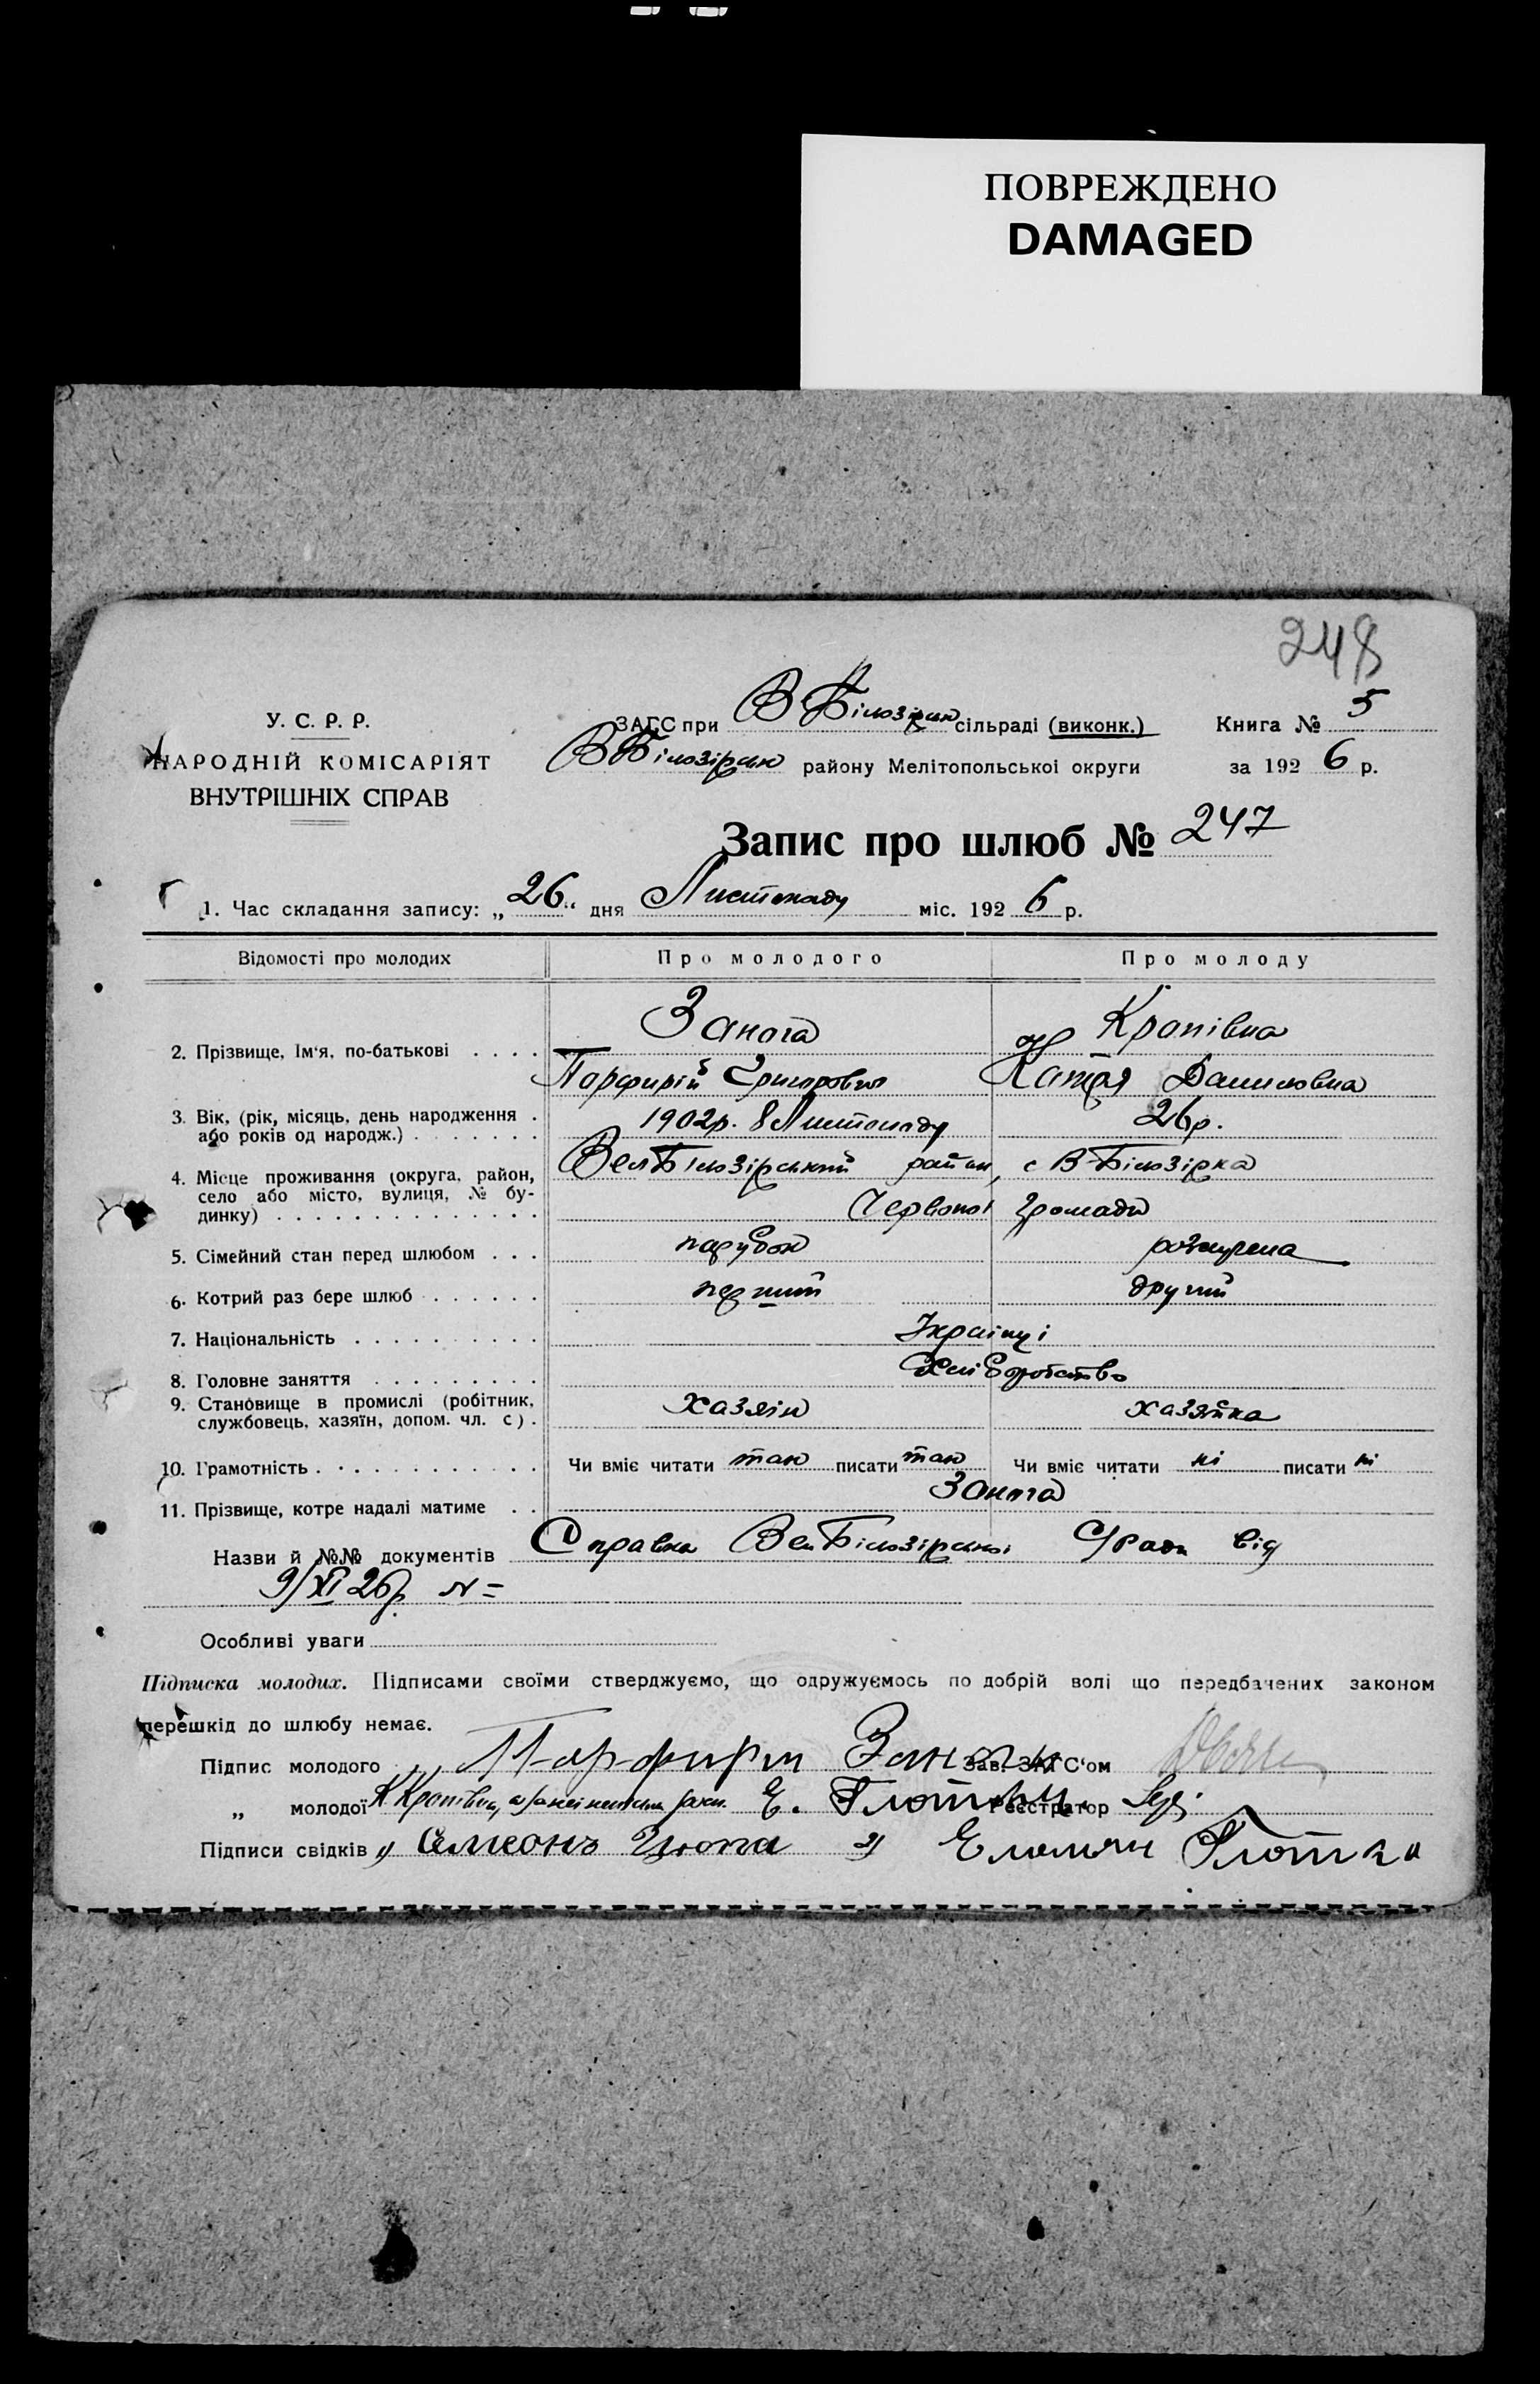 ПОВРЕЖДЕНО
DAMAGED
248
У. С. Р. Р.
НАРОДНІЙ КОМІСАРІЯТ
ВНУТРІШНІХ СПРАВ
ЗАГС при В Білозірск сільраді (виконк.) Книга № 5
В Білозірськ району Мелітопольськоі округи за 192 6 р.
Запис про шлюб № 247
1. Час складання запису: „26“ дня Листопаду міс. 192 6 р.
Відомості про молодих Про молодого Про молоду
Занога Кропівна
2. Прізвище, Ім‘я, по-батькові . . . .
Порфирій Григорович Катря Даниловна
3. Вік, (рік, місяць, день народження . 1902р. 8 Листопаду 26р.
або років од народж.) . . . . . . .
4. Місце проживання (округа, район, Вел Білозірський район, с В-Білозірка
село або місто, вулиця, № бу-
динку) . . . . . . . . . . . . . . Червоної Громади
5. Сімейний стан перед шлюбом . . . парубок розлучена
6. Котрий раз бере шлюб . . . . . . перший другий
7. Національність . . . . . . . . . . Українці
8. Головне заняття . . . . . . . . . Хліборобство
9. Становище в промислі (робітник, хазяїн хазяйка
службовець, хазяїн, допом. чл. с) .
10. Грамотність . . . . . . . . . . . . Чи вміє читати так писати так Чи вміє читати ні писати ні
11. Прізвище, котре надалі матиме . . Занога
Назви й №№ документів Справка Вел Білозірської С/ради від
9/XI 26р. N =
Особливі уваги
Підписка молодих. Підписами своїми стверджуємо, що одружуємось по добрій волі що передбачених законом
перешкід до шлюбу немає.
Підпис молодого Порфирий Занога Зав. ЗАГС‘ом
„ молодої К Кропівна, Е. Реєстратор
Підписи свідків 1) 2) Емельян